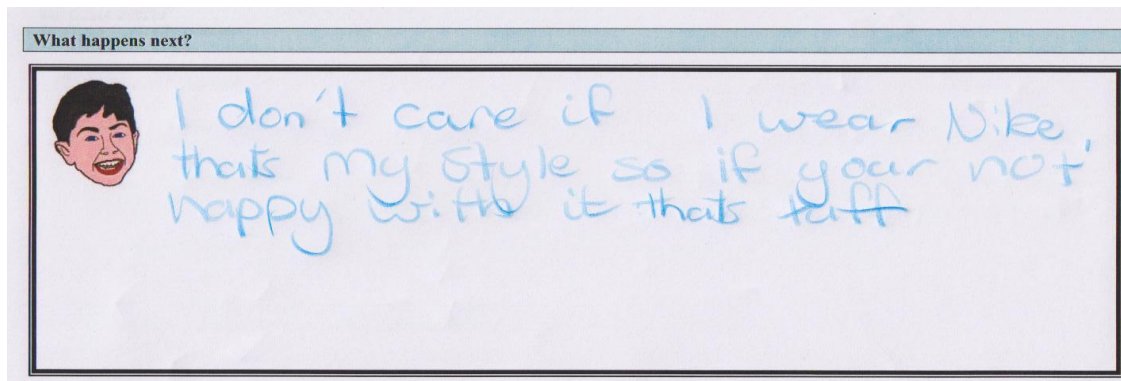 What happens next?
I don't care if I wear Nike,
thats my style so if your not
happy with it thats tuff